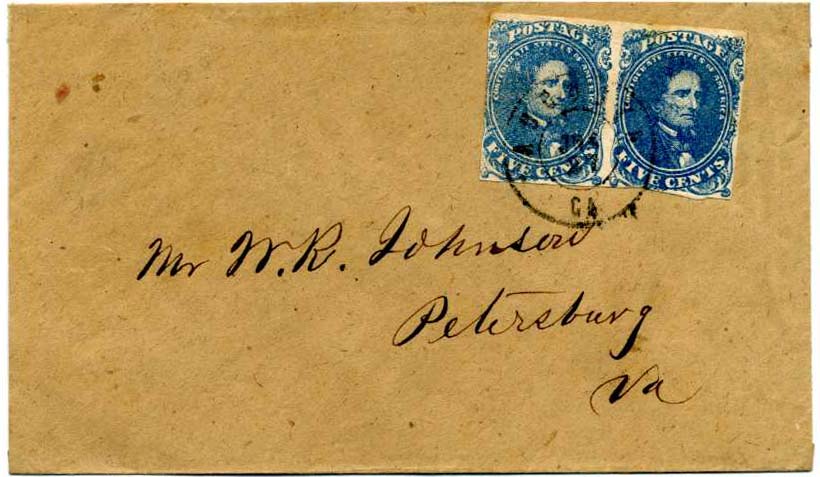 POSTAGE POSTAGE
CONFEDERATE STATES OF AMERICA CONFEDERATE STATES OF AMERICA
FIVE CENTS FIVE CENTS
GA
Mr W.R. Johnson
Petersburg
Va